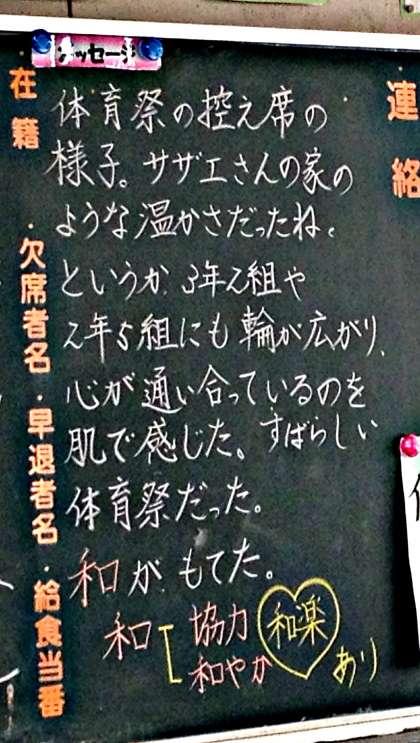 メッセージ
連絡
在籍
・欠席者名・早退者名・給食当番
体育祭の控え席の
様子。サザエさんの家の
ような温かさだったね。
というか、3年2組や
2年5組にも輪が広がり、
心が通い合っているのを
肌で感じた。すばらしい
体育祭だった。
和がもてた。
和 協力 和楽 あり
和やか